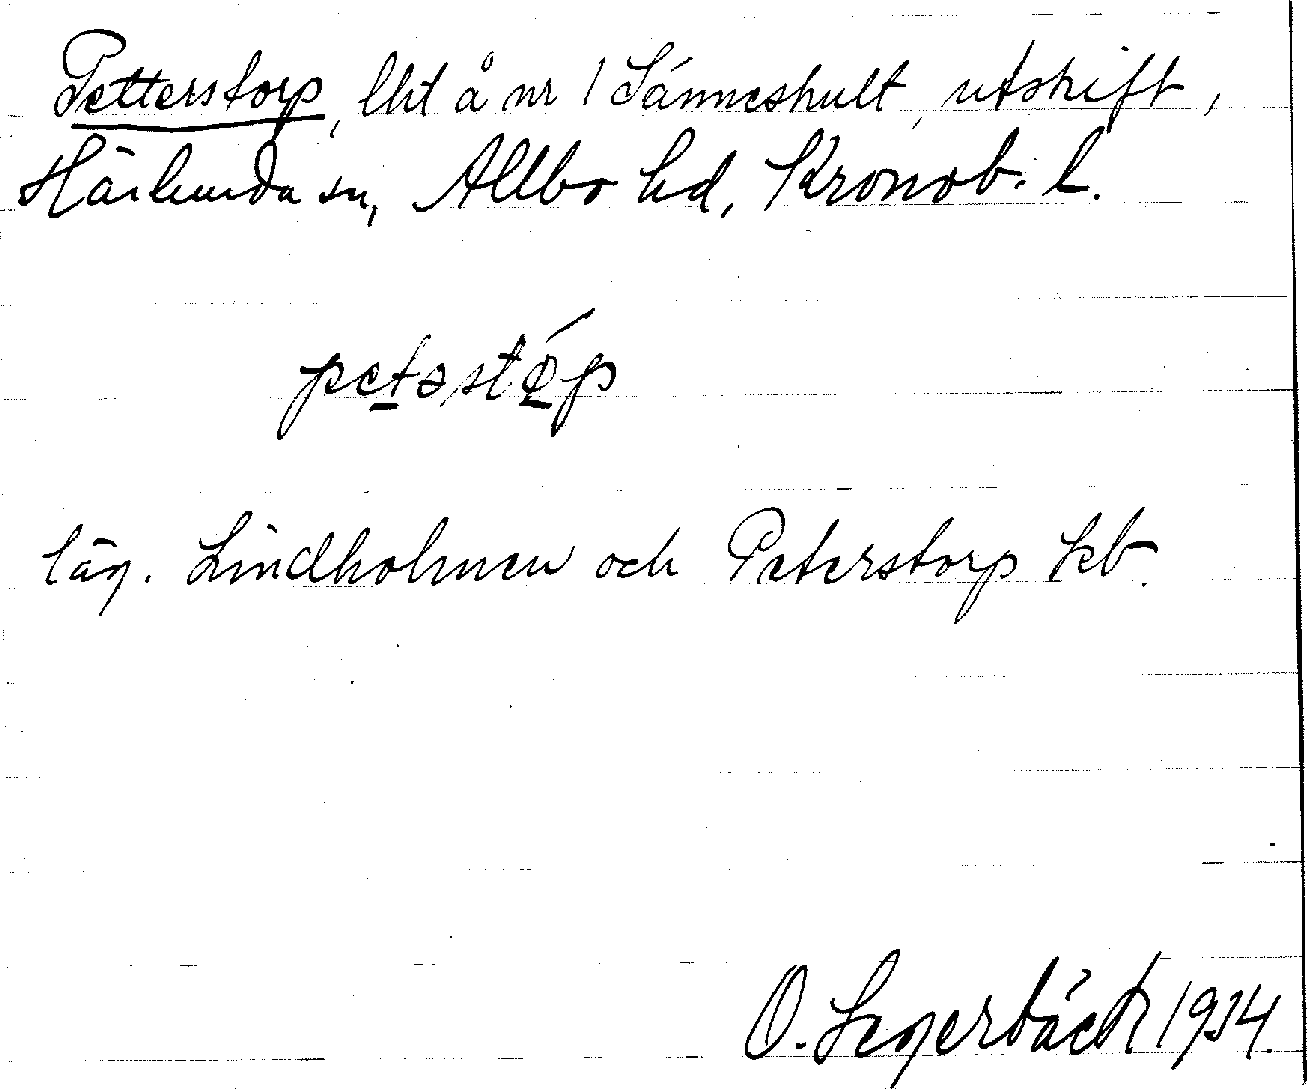 Petterstorp, lht å nr 1 Sånneshult, utskift,
Härlunda sn, Allbo hd, Kronob. l.
petəstǿp
läg. Lindholmen och Peterstorp kb.
O. Segerbäck 1934.